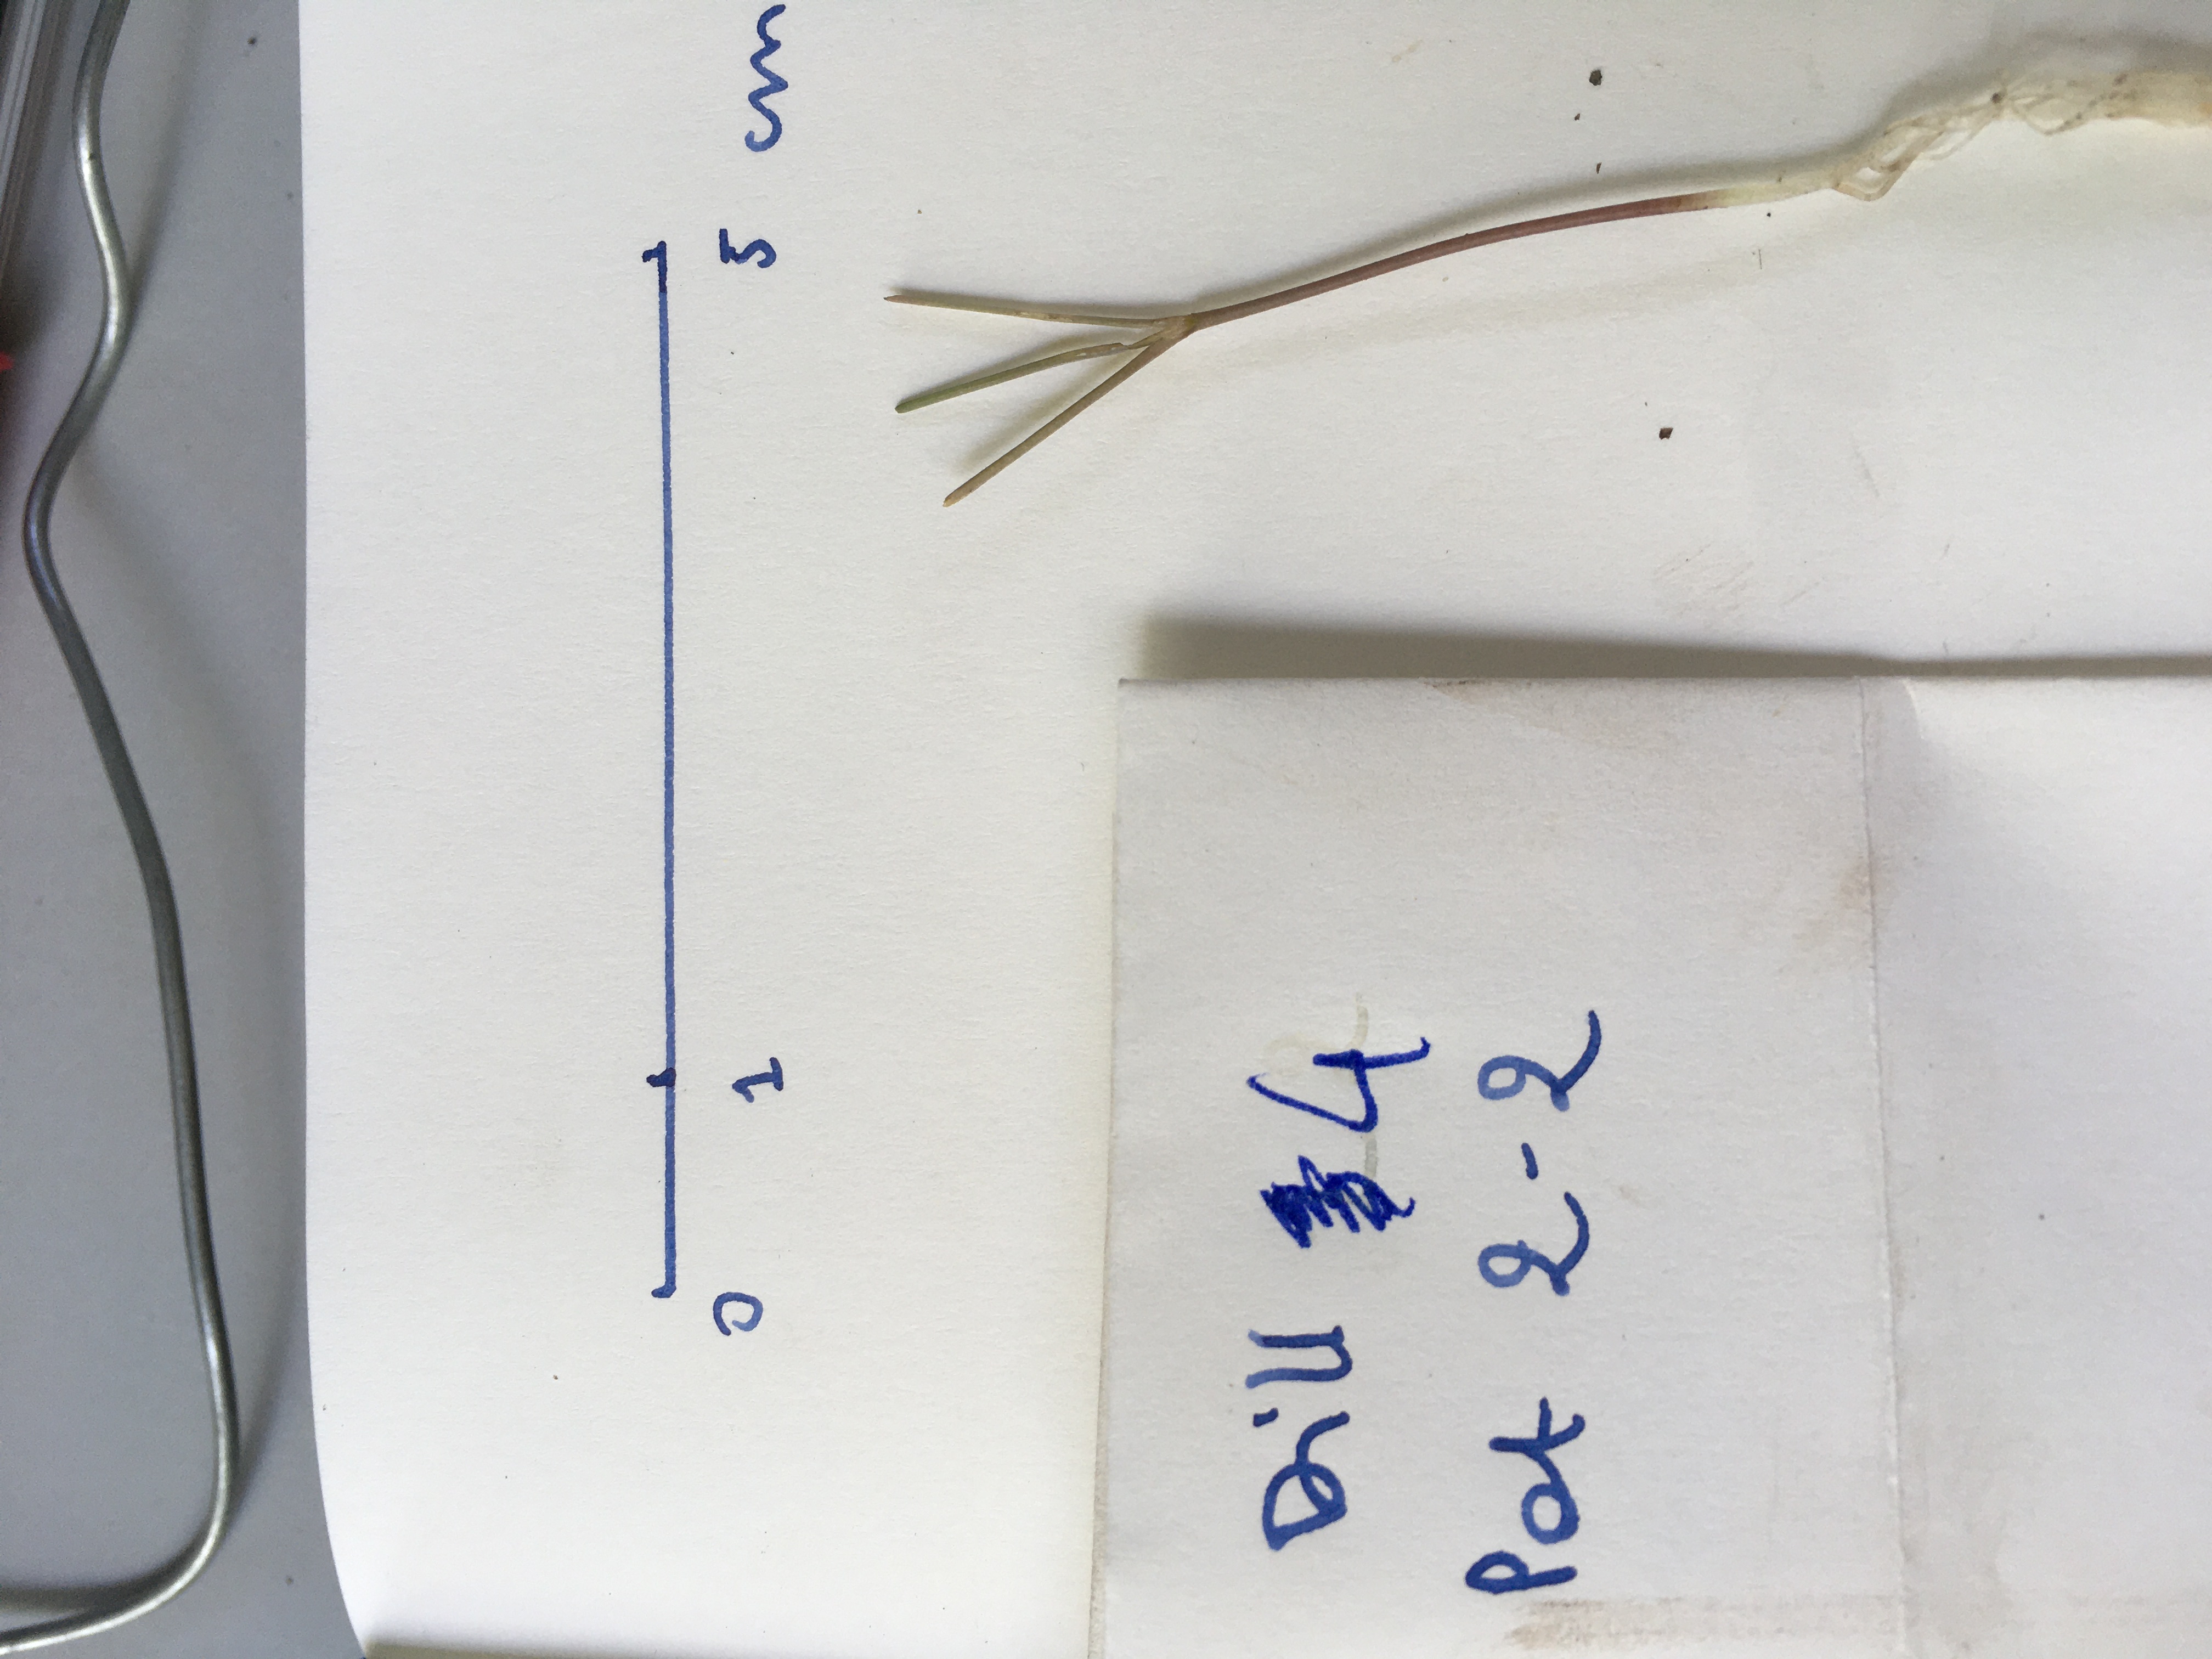 0 1 5 cm
Dill 4
Pot 2-2